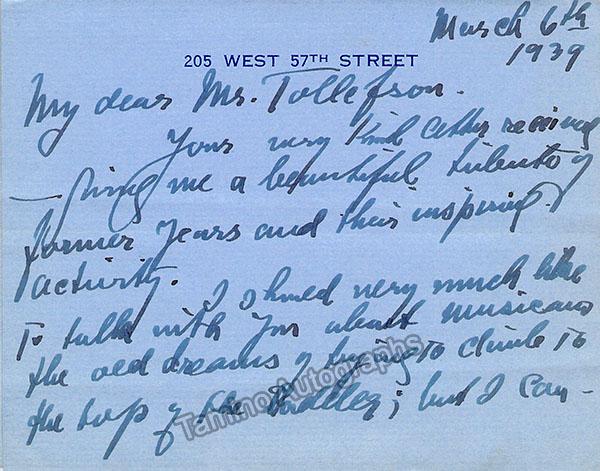 March 6th
1939
205 WEST 57TH STREET
My dear Mr. Tollefson.
Your very kind letter received
bring me a beautiful tribute of
former years and their inspiring
activity. I should very much like
to talk with you about musicians
the old dreams of trying to climb to
the top of the ; but I can-
Tamino Autographs